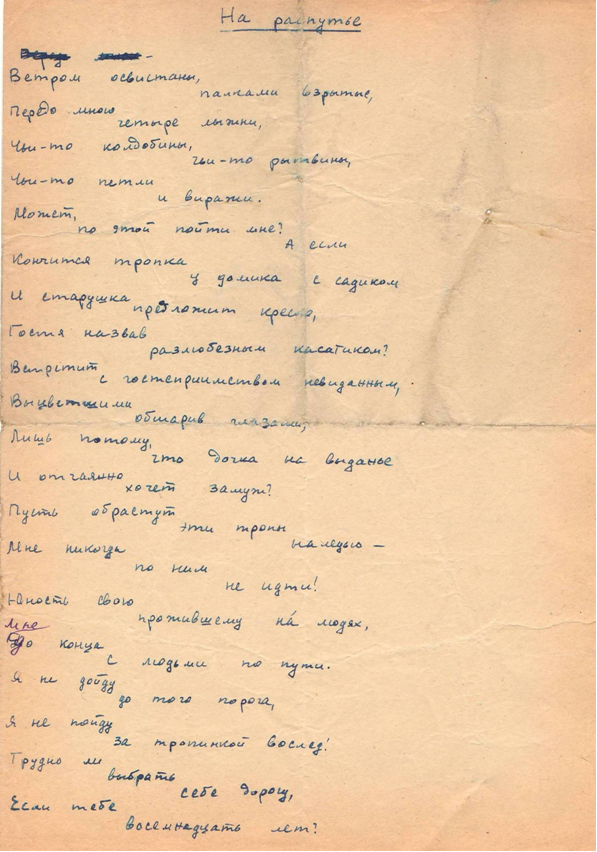 На распутье
Ветром освистаны,
палками взрытые,
Передо мною
четыре лыжни,
Чьи-то колдобины,
чьи-то рытвины,
Чьи-то петли
и виражи.
Может,
по этой пойти мне?
А если
Кончится тропка
у домика с садиком
И старушка
предложит кресло,
Гостя назвав
разлюбезным касатиком?
Встретит
с гостеприимством невиданным,
Выцветшими
обшарив глазами,
Лишь потому,
что дочка на выданье
И отчаянно
хочет замуж?
Пусть обрастут
эти тропы
наледью —
Мне никогда
по ним
не идти!
Юность свою
прожившему на́ людях,
Мне
До конца
с людьми по пути.
Я не дойду
до того порога,
Я не пойду
за тропинкой вослед!
Трудно ли
выбрать
себе дорогу,
Если тебе
восемнадцать лет?